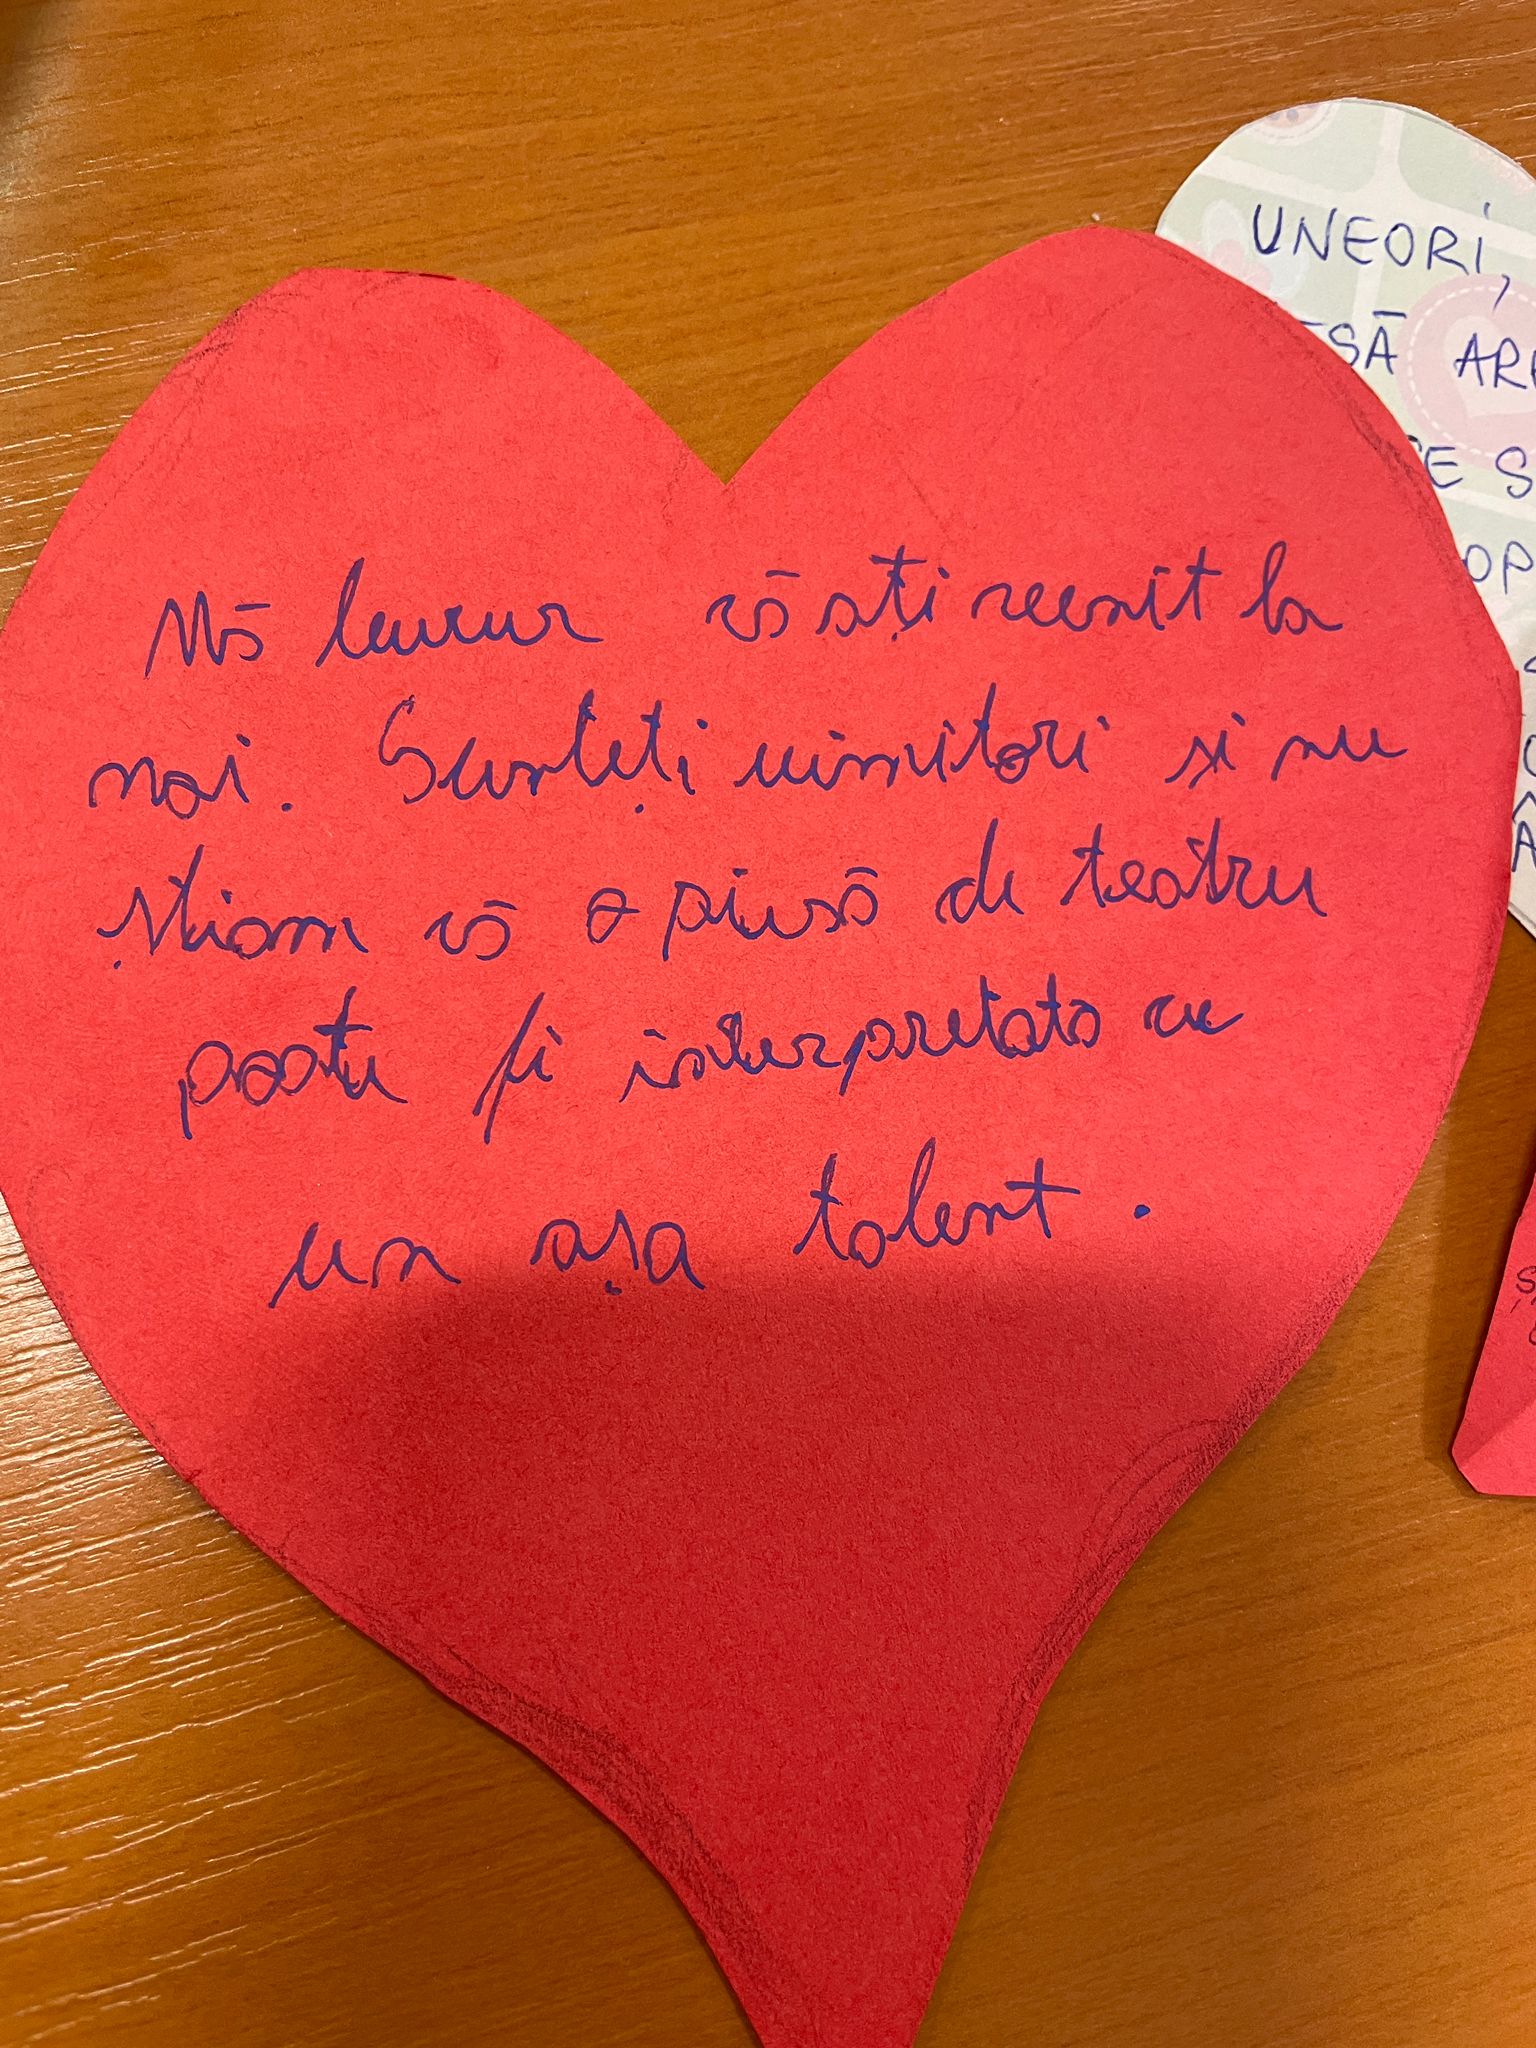 Mă bucur că ați venit la
noi. Sunteți uimitori și nu
știam că o piesă de teatru
poate fi interpretata cu
un așa talent.
UNEORI,